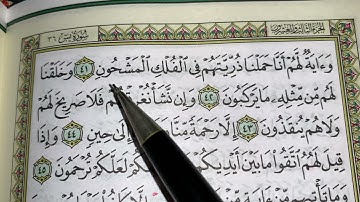 سورة يس ٣٦
الجزء الثالث والعشرون
وَءَايَةٌ لَّهُمْ أَنَّا حَمَلْنَا ذُرِّيَّتَهُمْ فِي ٱلْفُلْكِ ٱلْمَشْحُونِ ٤١ وَخَلَقْنَا
لَهُم مِّن مِّثْلِهِۦ مَا يَرْكَبُونَ ٤٢ وَإِن نَّشَأْ نُغْرِقْهُمْ فَلَا صَرِيخَ لَهُمْ
وَلَا هُمْ يُنقَذُونَ ٤٣ إِلَّا رَحْمَةً مِّنَّا إِلَىٰ حِينٍ ٤٤ وَإِذَا
قِيلَ لَهُمُ ٱتَّقُوا۟ مَا بَيْنَ أَيْدِيكُمْ لَعَلَّكُمْ تُرْحَمُونَ ٤٥
وَمَا تَأْتِيهِم مِّنْ ءَايَةٍ